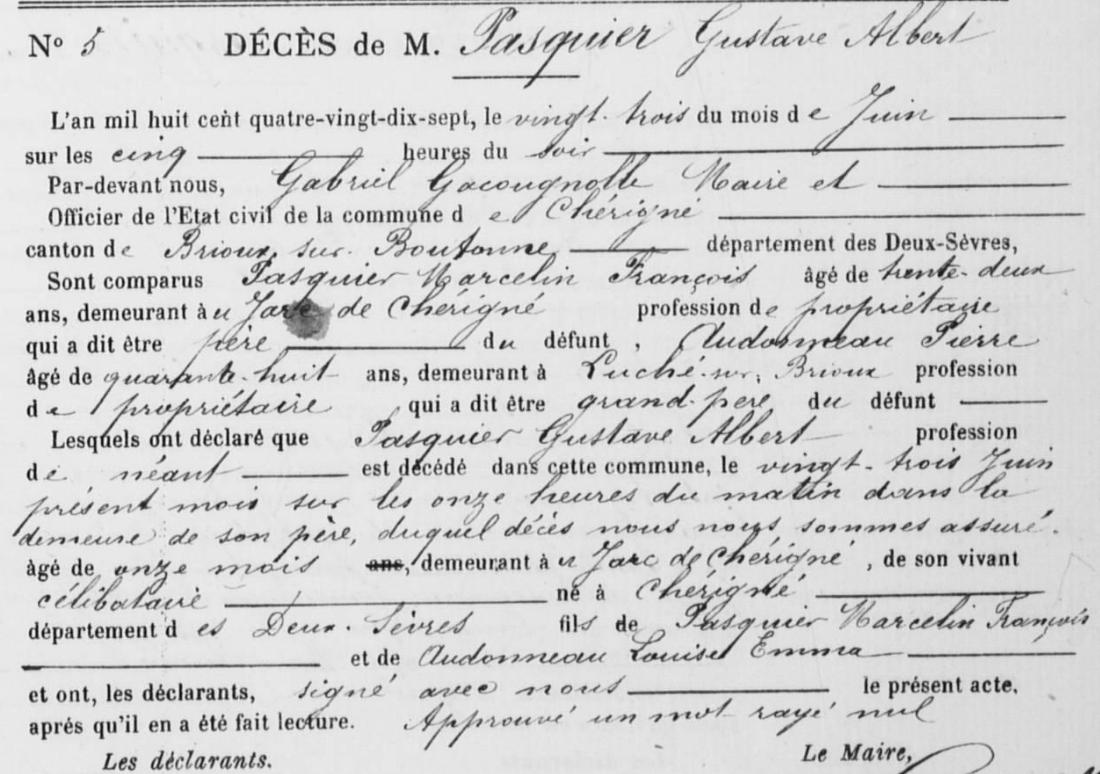 N° 5 DÉCÈS de M. Pasquier Gustave Albert
L'an mil huit cent quatre-vingt-dix-sept, le vingt-trois du mois de Juin
sur les cinq heures du soir
Par-devant nous, Gabriel Gacougnolle Maire et
Officier de l'Etat civil de la commune de Chérigné
canton de Brioux sur Boutonne département des Deux-Sèvres,
Sont comparus Pasquier Marcelin François âgé de trente-deux
ans, demeurant au Jarc de Chérigné profession de propriétaire
qui a dit être père du défunt, Audonneau Pierre
âgé de quarante-huit ans, demeurant à Luché-sur-Brioux profession
de propriétaire qui a dit être grand-père du défunt
Lesquels ont déclaré que Pasquier Gustave Albert profession
de néant est décédé dans cette commune, le vingt-trois Juin
présent mois sur les onze heures du matin dans la
demeure de son père, duquel décès nous nous sommes assuré.
âgé de onze mois ans, demeurant au Jarc de Chérigné, de son vivant
célibataire né à Chérigné
département des Deux-Sèvres fils de Pasquier Marcelin François
et de Audonneau Louise Emma
et ont, les déclarants, signé avec nous le présent acte,
aprés qu'il en a été fait lecture. Approuvé un mot rayé nul
Les déclarants. Le Maire,